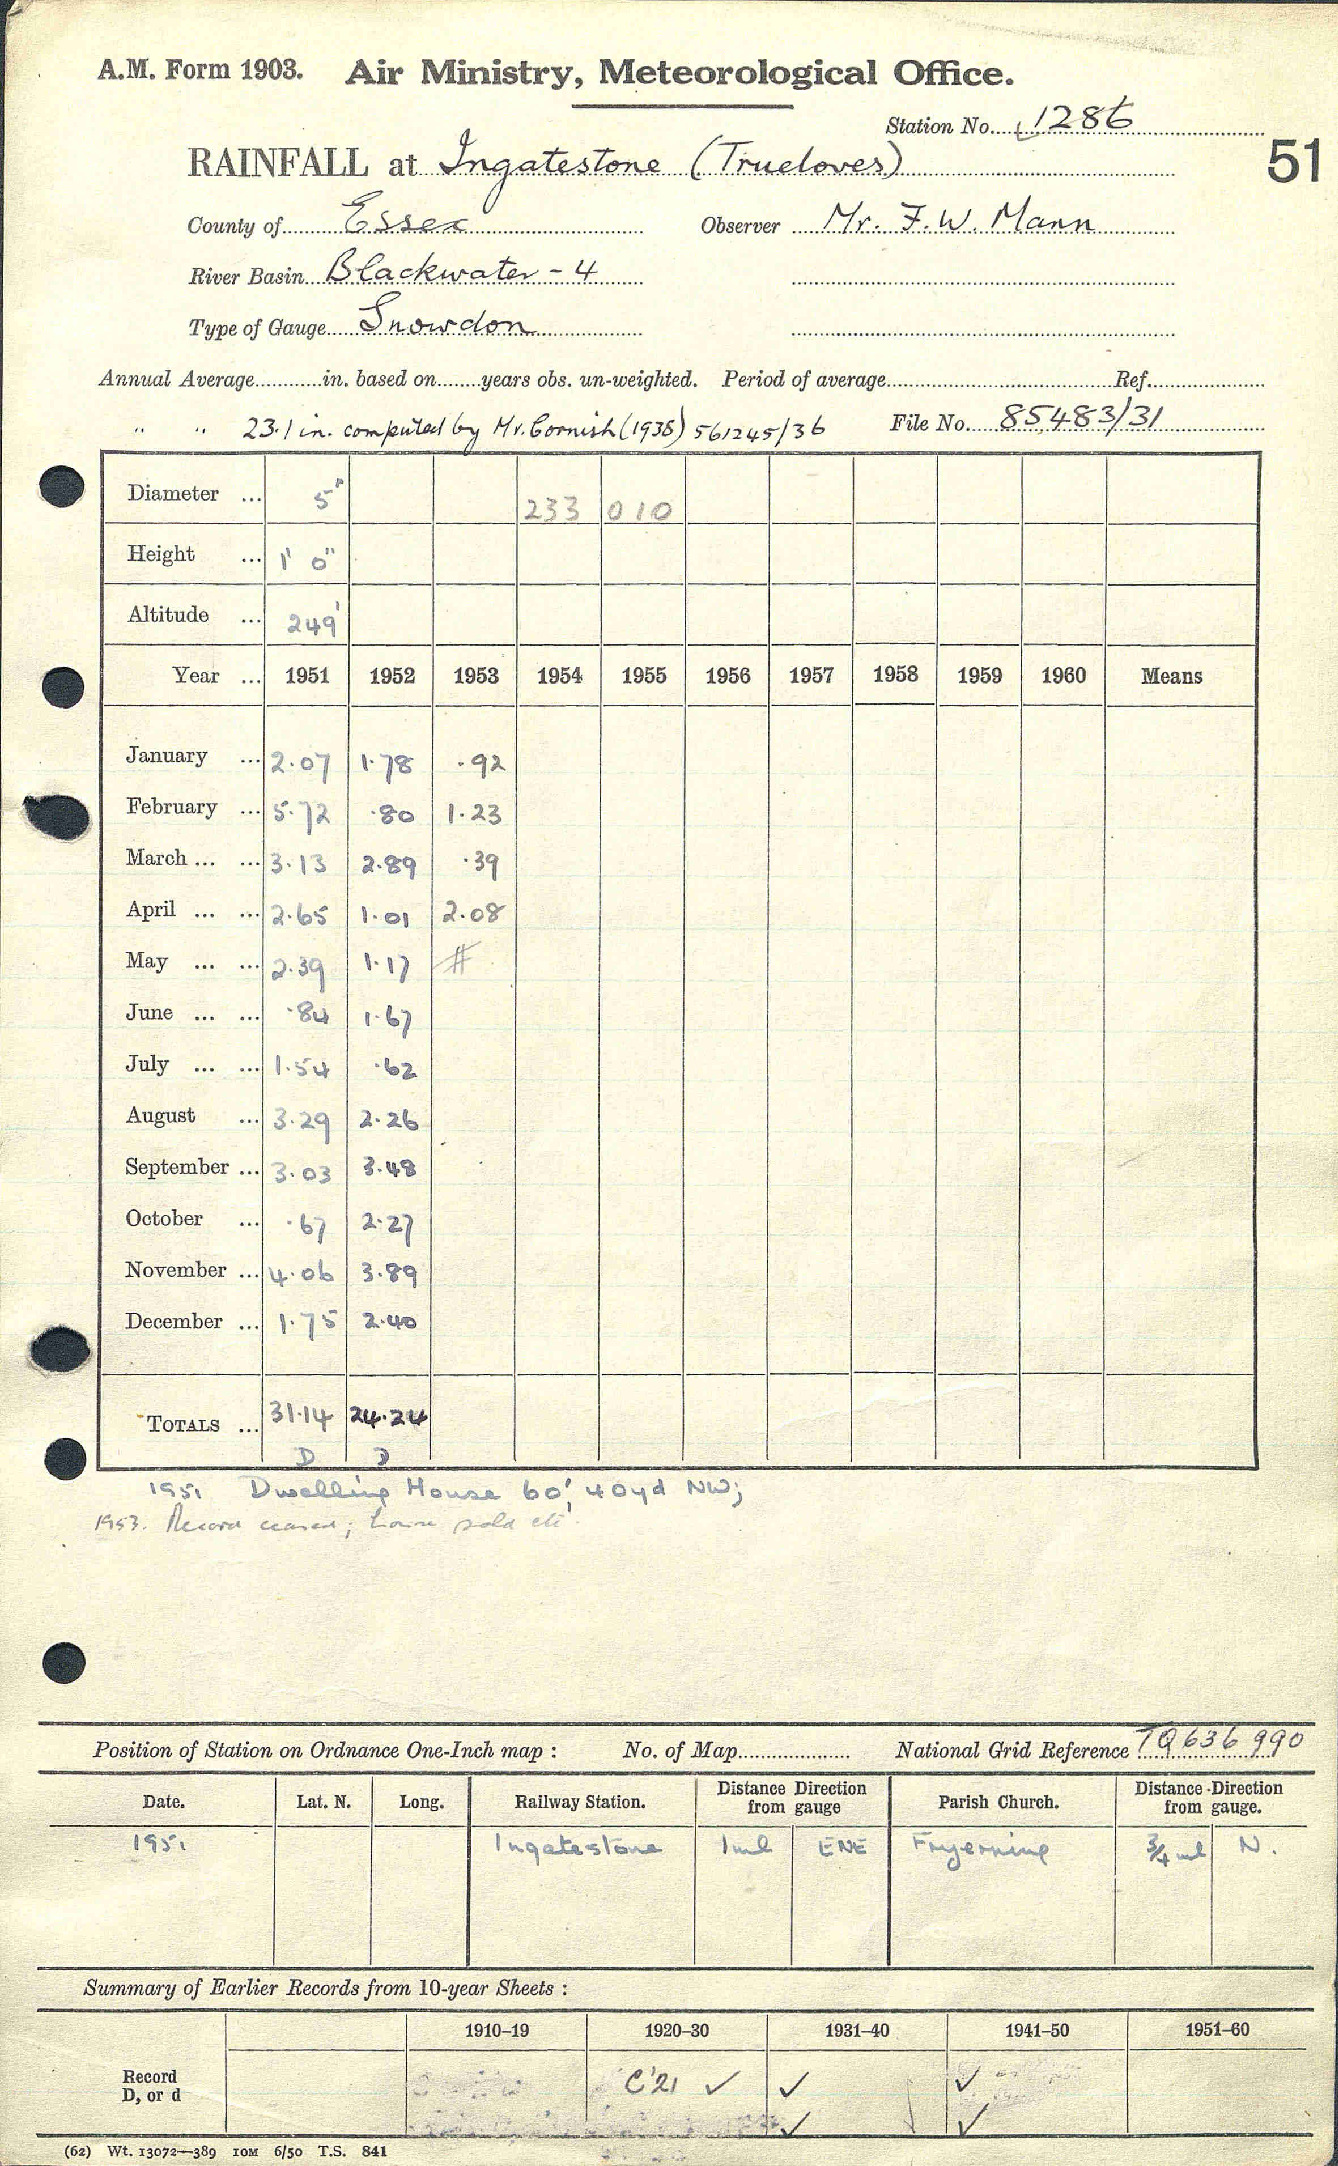 A.M. Form 1903. Air Ministry, Meteorological Office.
Station No. 1286
51
RAINFALL at Ingatestone (Trueloves)
County of Essex Observer Mr. F. W. Mann
River Basin Blackwater - 4
Type of Gauge Snowdon
Annual Average in. based on years obs. un-weighted. Period of average Ref.
" " 23.1 in. computed by Mr. Cornish (1938) 561245/36 File No. 85483/31
Diameter ... 5" 233 010
Height ... 1' 0"
Altitude ... 249'
Year ... 1951 1952 1953 1954 1955 1956 1957 1958 1959 1960 Means
January ... 2.07 1.78 .92
February ... 5.72 .80 1.23
March ... ... 3.13 2.89 .39
April ... ... 2.65 1.01 2.08
May ... ... 2.39 1.17 #
June ... ... .84 1.67
July ... ... 1.54 .62
August ... 3.29 2.26
September ... 3.03 3.48
October ... .67 2.27
November ... 4.06 3.89
December ... 1.75 2.40
TOTALS ... 31.14 24.24
D D
1951 Dwelling House 60', 40yd NW;
1953. Record ceased; house sold etc.
Position of Station on Ordnance One-Inch map : No. of Map National Grid Reference TQ 636 990
Date. Lat. N. Long. Railway Station. Distance Direction from gauge Parish Church. Distance Direction from gauge.
1951 Ingatestone 1ml ENE Fryerning 3/4 ml N.
Summary of Earlier Records from 10-year Sheets :
1910–19 1920–30 1931–40 1941–50 1951–60
Record D, or d C'21 ✓ ✓ ✓
✓ ✓
(62) Wt. 13072—389 10M 6/50 T.S. 841